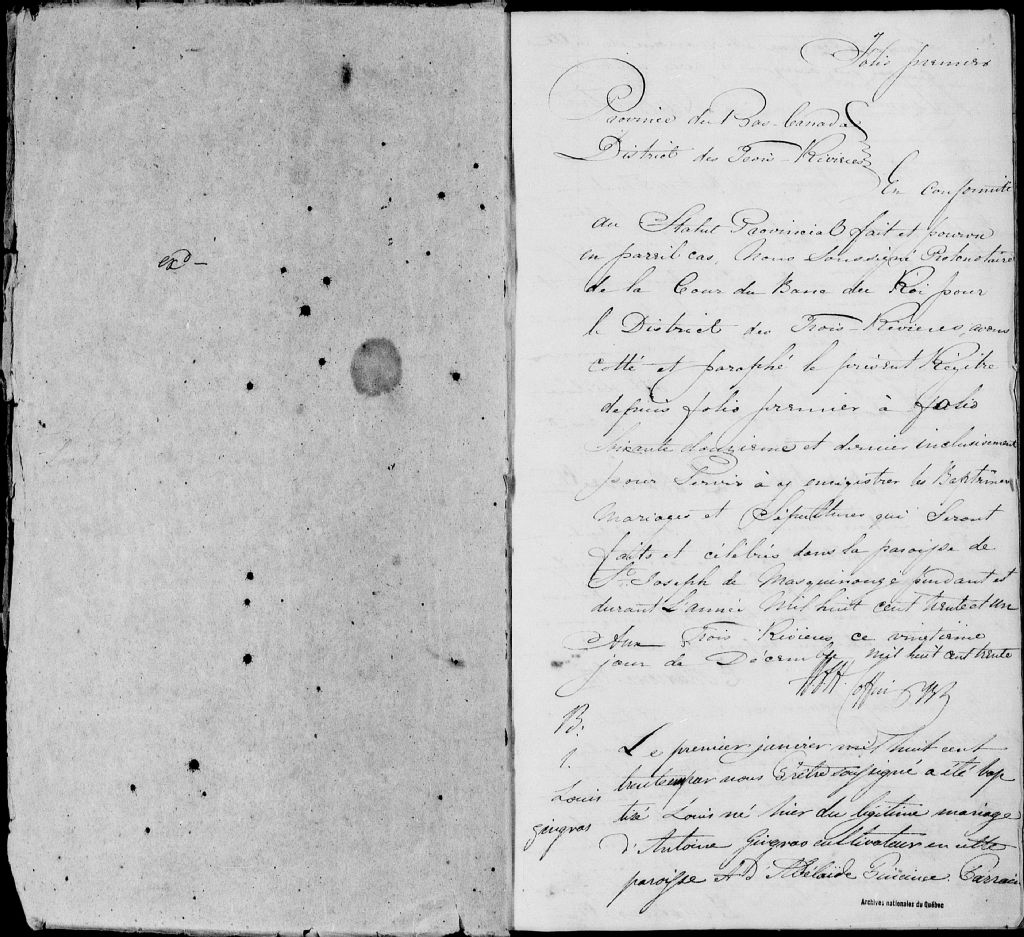 exd —
Folio premier
Province du Bas-Canada
District des Trois-Rivieres
En conformité
au Statut Provincial fait et pourvu
en pareil cas, Nous Soussigné Protonotaire
de la Cour du Banc du Roi pour
le District des Trois-Rivieres, avons
cotté et paraphé le présent Régître
depuis folio premier à folio
soixante douzieme et dernier inclusivement
pour Servir à y enregistrer les Baptêmes
Mariages et Sépultures qui Seront
faits et célébrés dans la paroisse de
St. Joseph de Masquinongé pendant et
durant L'année Mil huit cent trente et un
Aux Trois-Rivieres ce vingtieme
jour de Décembre Mil huit cent trente
Coffin
B.
1.
Louis
gingras
Le premier janvier mil huit cent
trente un par nous Prêtre soussigné a été bap
tisé Louis né hier du légitime mariage
d'Antoine Gingras cultivateur en cette
paroisse et d'Adélaïde
Archives nationales du Québec